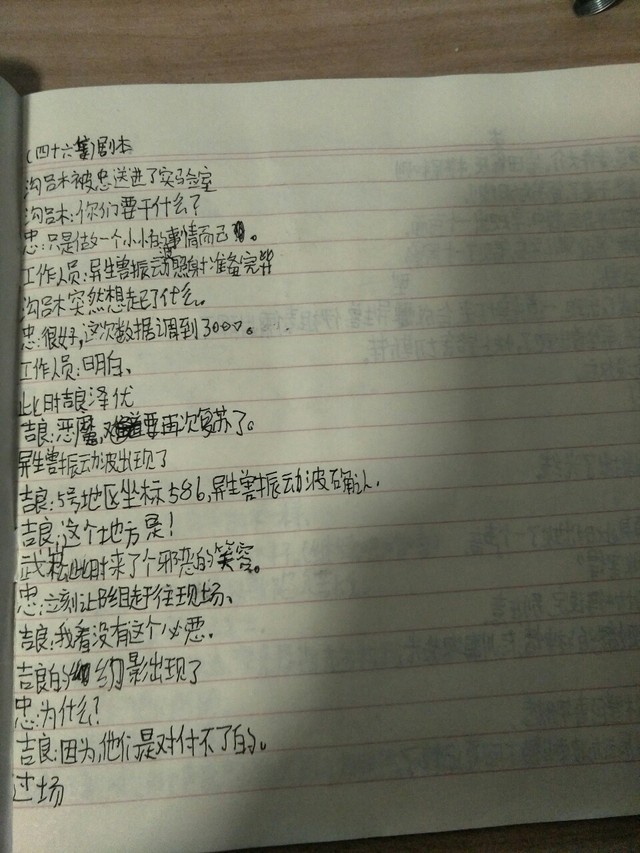 (四十六集)剧本
沟吕木被忠送进了实验室
沟吕木:你们要干什么?
忠:只是做一个小小的事情而已。
工作人员:异生兽振动照射准备完毕
沟吕木突然想起了什么。
忠:很好,这次数据调到3000。
工作人员:明白、
此时吉良泽优
吉良:恶魔,难道要再次复苏了。
异生兽振动波出现了
吉良:5号地区坐标586,异生兽振动波确认.
吉良:这个地方是!
武松此时来了个邪恶的笑容。
忠:立刻让B组赶往现场、
吉良:我看没有这个必要.
吉良的幻影出现了
忠:为什么?
吉良:因为,他们是对付不了的。
过场